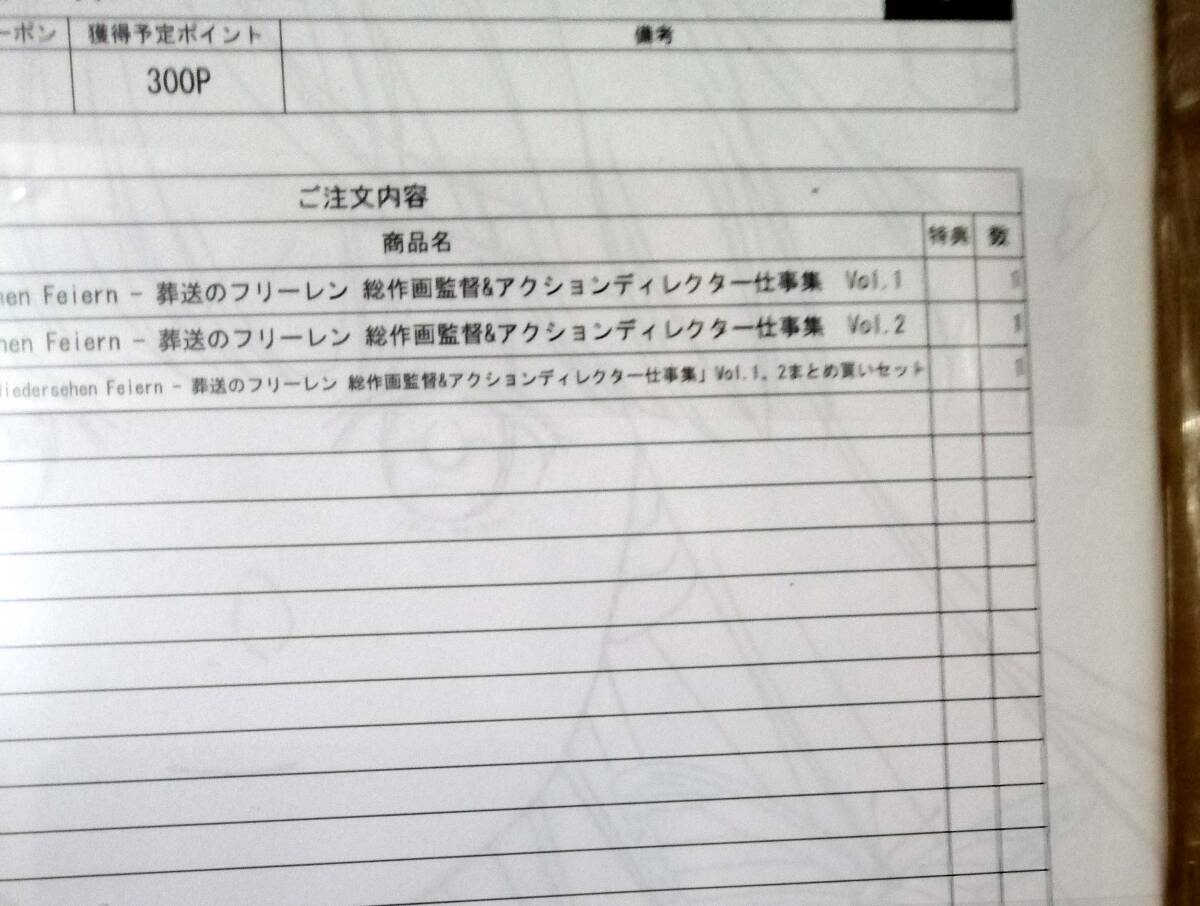 ーポン 獲得予定ポイント 備考
300P
ご注文内容
商品名 特典 数
hen Feiern - 葬送のフリーレン 総作画監督&アクションディレクター仕事集 Vol.1 1
hen Feiern - 葬送のフリーレン 総作画監督&アクションディレクター仕事集 Vol.2 1
iedersehen Feiern - 葬送のフリーレン 総作画監督&アクションディレクター仕事集」Vol.1、2まとめ買いセット 1